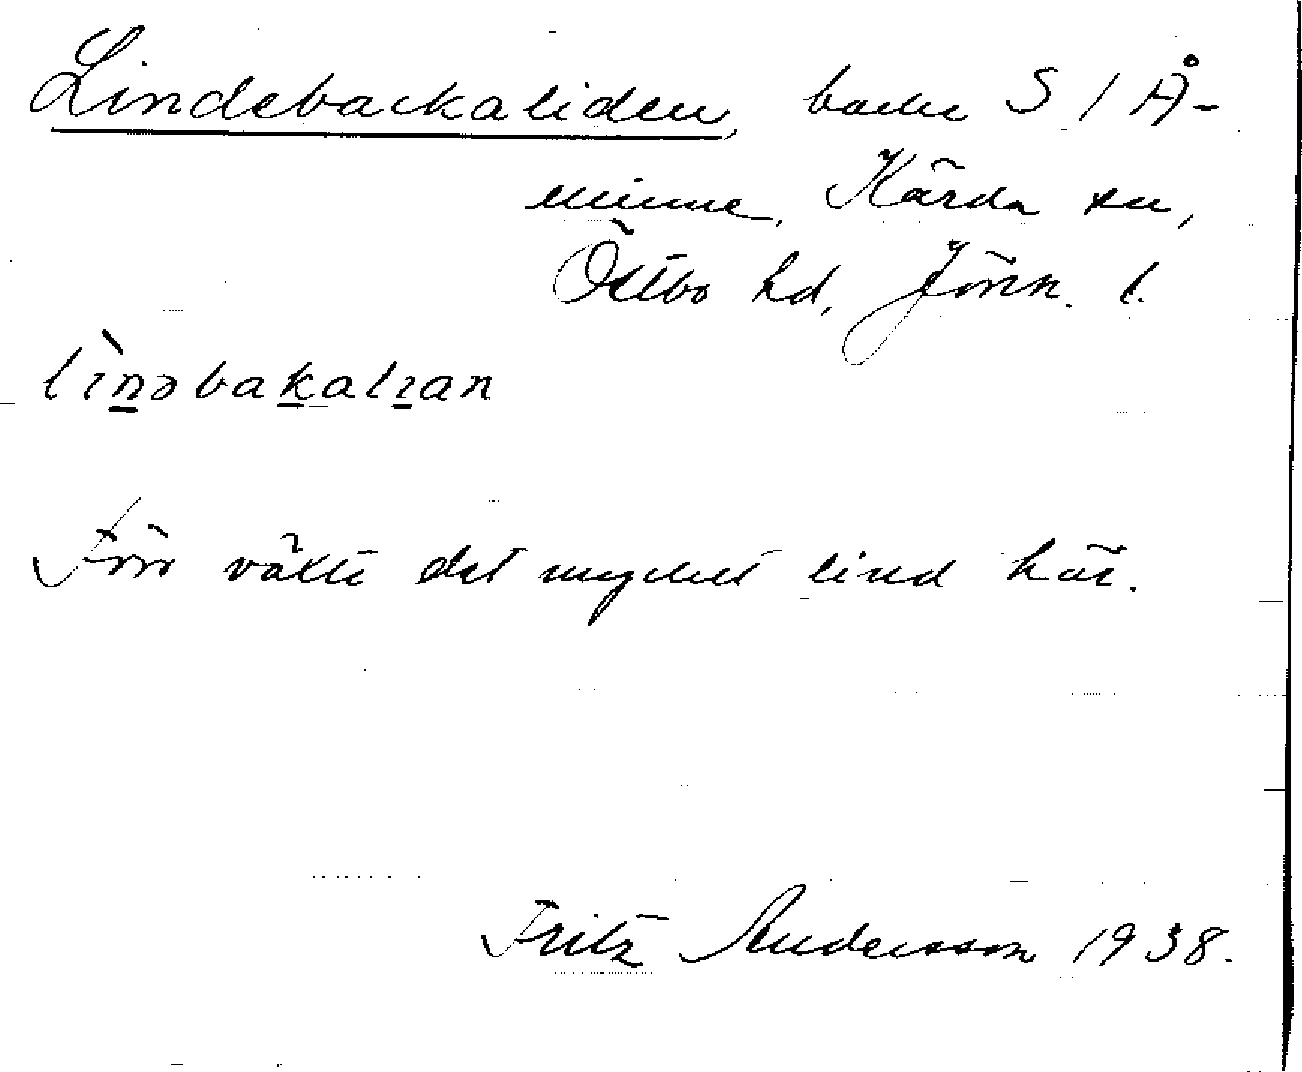 Lindebackaliden, backe S / Å-
minne, Kärda sn,
Östbo hd, Jönk. l.
lìnəbakalɪan
Förr växte det mycket lind här.
Fritz Andersson 1938.